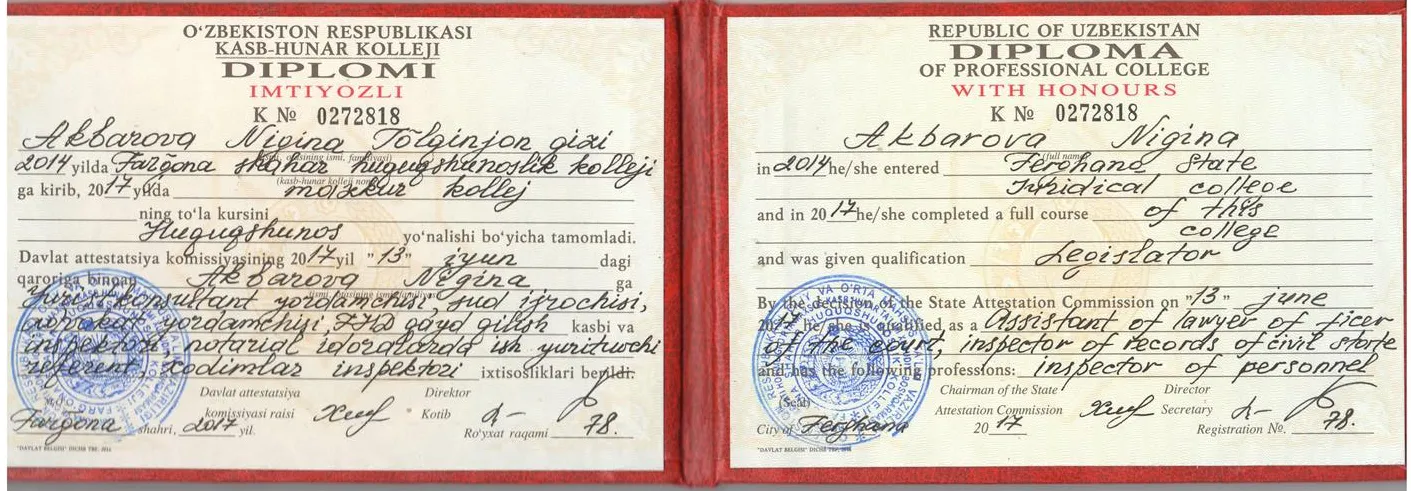 O‘ZBEKISTON RESPUBLIKASI
KASB-HUNAR KOLLEJI
DIPLOMI
IMTIYOZLI
K № 0272818
Akbarova Nigina Tõlqinjon qizi
2014 yilda Farg̃ona shahar huquqshunoslik kolleji
(kasb-hunar kolleji nomi)
ga kirib, 2017 yilda mazkur kollej
ning to‘la kursini
Huquqshunos yo‘nalishi bo‘yicha tamomladi.
Davlat attestatsiya komissiyasining 2017 yil "13" iyun dagi
qaroriga binoan Akbarova Nigina ga
Yuriskonsultant yordamchisi, sud ijrochisi,
advokat yordamchisi, FHD qayd qilish kasbi va
inspektori, notarial idoralarda ish yurituvchi
referent, xodimlar inspektori ixtisosliklari berildi.
Davlat attestatsiya Direktor
komissiyasi raisi Kotib
Farg̃ona shahri, 2017 yil. Ro‘yxat raqami 78.
"DAVLAT BELGISI" DICHB TBF. 2016
REPUBLIC OF UZBEKISTAN
DIPLOMA
OF PROFESSIONAL COLLEGE
WITH HONOURS
K № 0272818
Akbarova Nigina
(full name)
in 2014 he/she entered Ferghana State
Juridical college
and in 2017 he/she completed a full course of this
college
and was given qualification Legislator
By the decision of the State Attestation Commission on "13" june
2017 he/she is qualified as a Assistant of lawyer of ficer
of the court, inspector of records of civil state
and has the following professions: inspector of personnel
Chairman of the State Director
(Seal) Attestation Commission Secretary
City of Ferghana 2017 Registration №. 78.